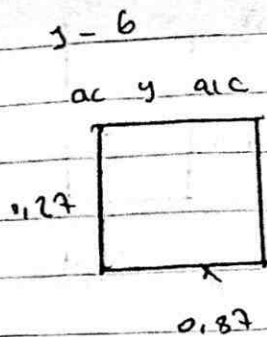 1 - 6
ac y a1c
1,27
0,87